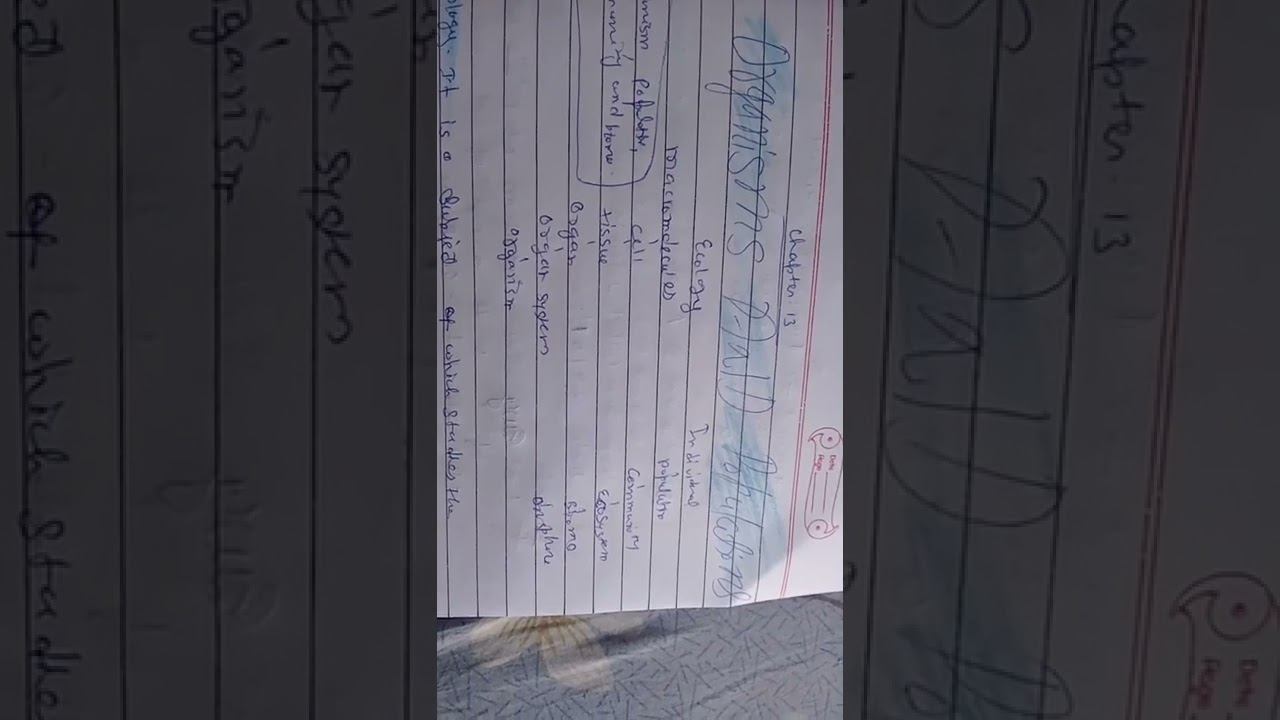 Chapter: 13
Date
Page
Organisms And Populations
Ecology
Individual
macromolecules
populatio
cell
Community
tissue
Ecosystem
Organ
Biome
Organ system
organism
nism, populatn,
munity and biome.
ology. It is a Subject of which Studies the